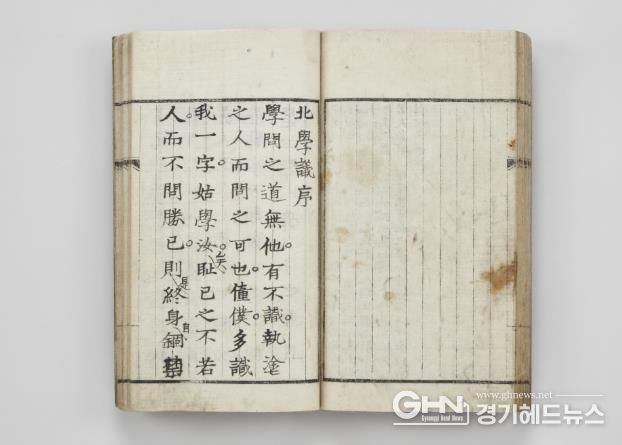 北學議序
學問之道無他有不識執塗
之人而問之可也僮僕多識
我一字姑學汝恥已之不若
人而不問勝已則是終身自錮
www.ghnews.net
GHN 경기헤드뉴스
Gyeonggi Head News